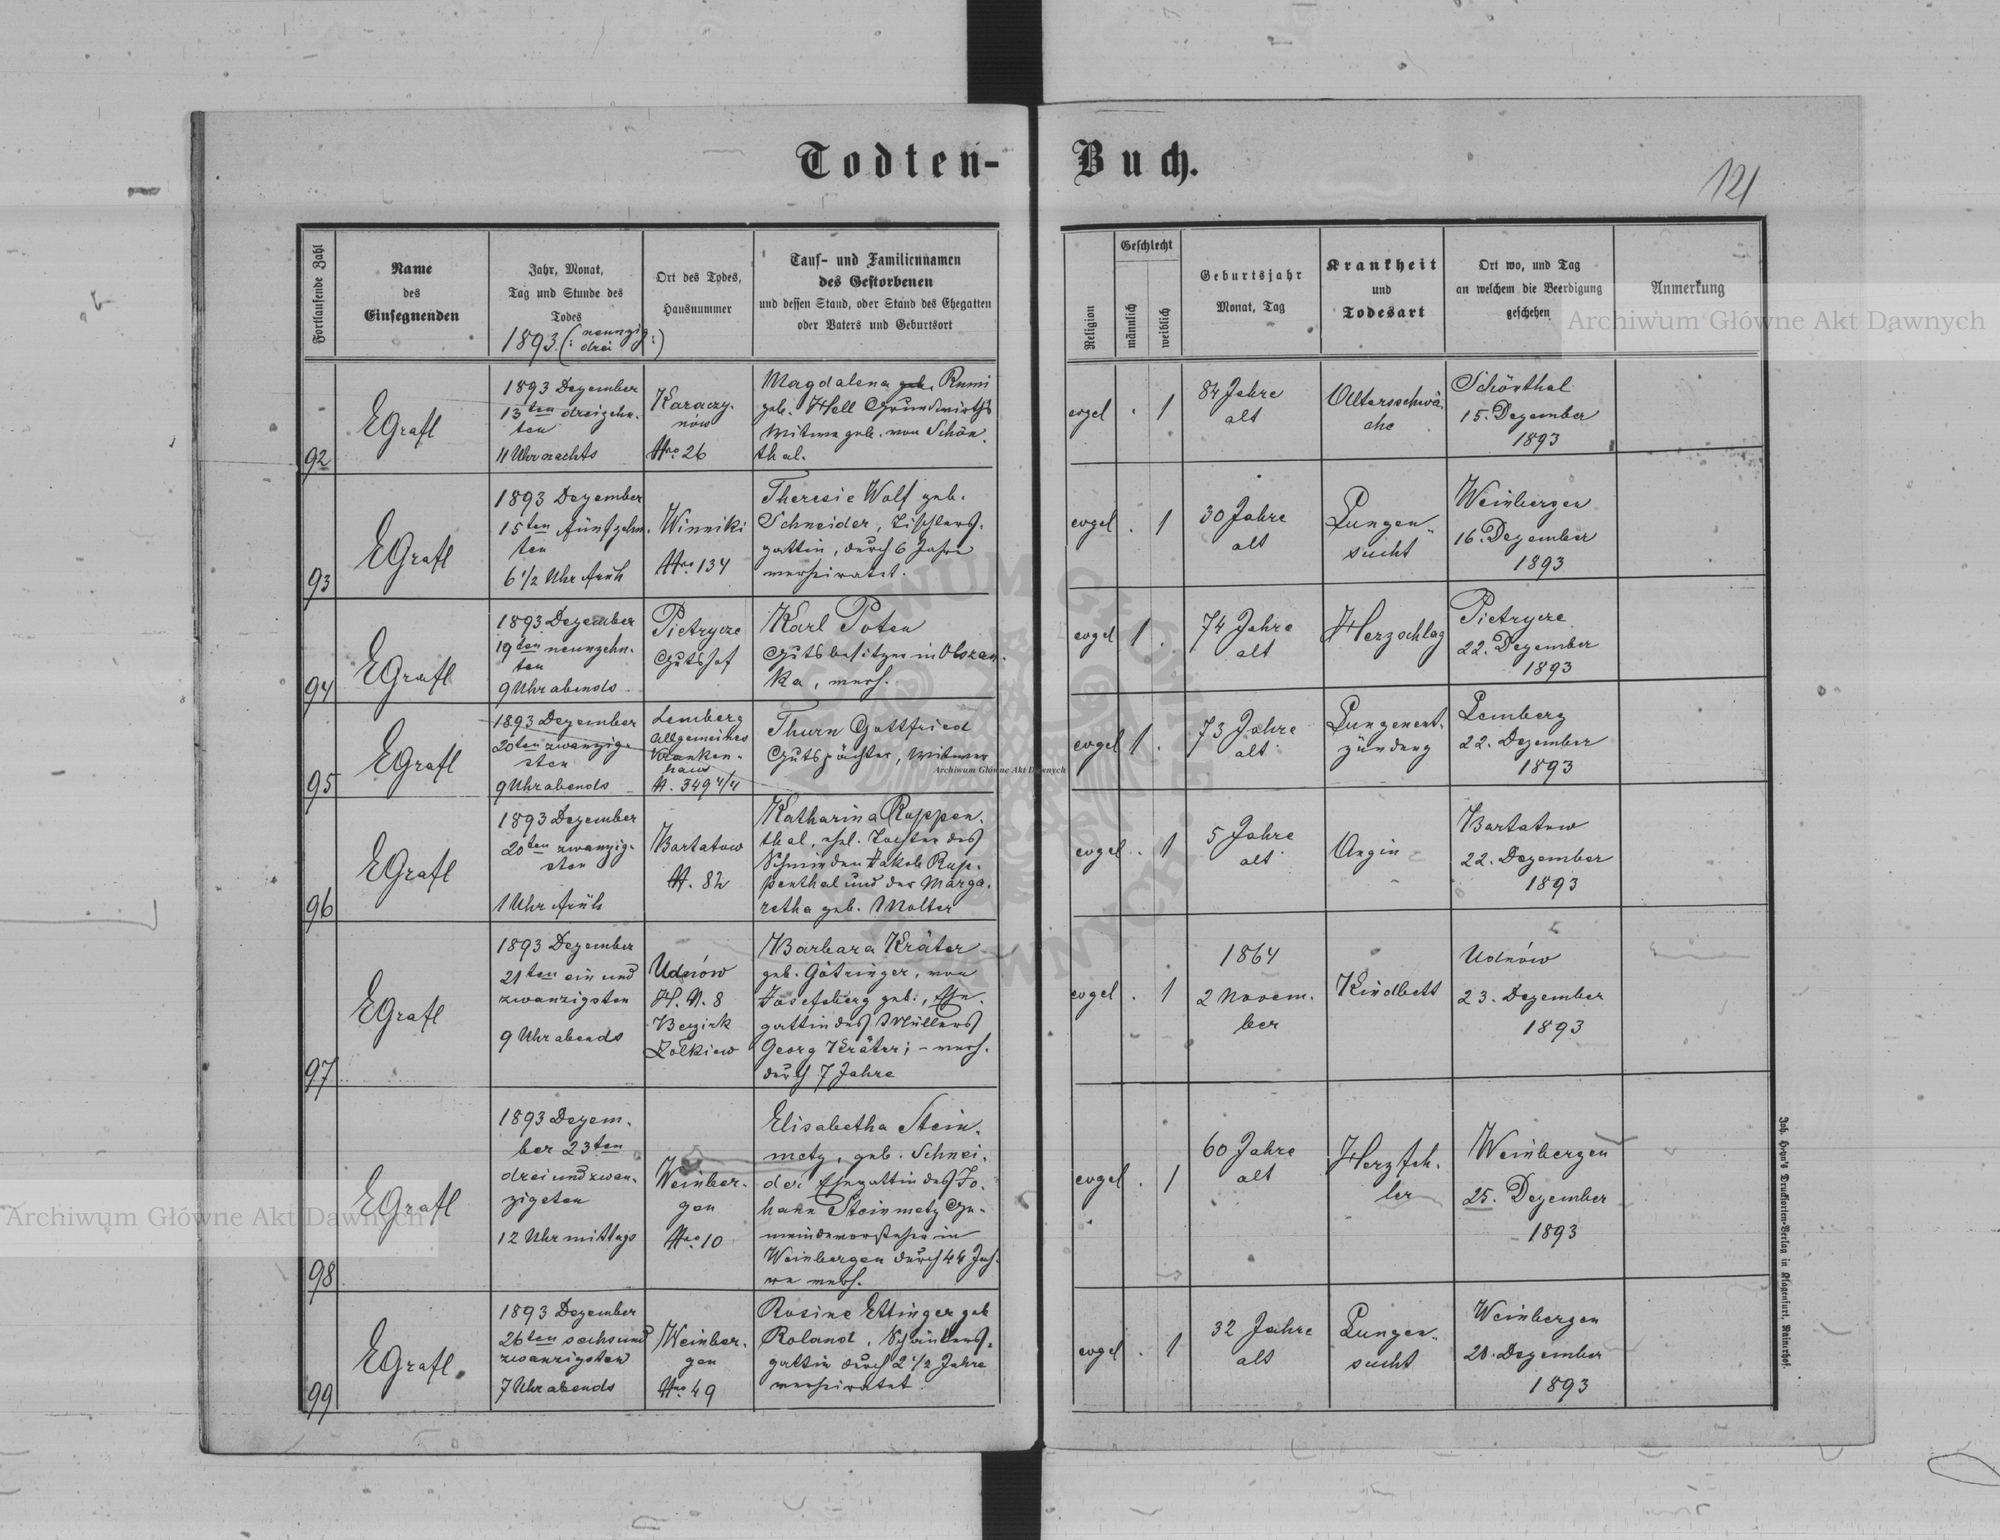 Todten-
Buch.
121
Fortlaufende Zahl
Name
des
Einsegnenden
Jahr, Monat,
Tag und Stunde des
Todes
1893 (: neunzig drei :)
Ort des Todes,
Hausnummer
Tauf- und Familiennamen
des Gestorbenen
und dessen Stand, oder Stand des Ehegatten
oder Vaters und Geburtsort
Religion
Geschlecht
männlich
weiblich
Geburtsjahr
Monat, Tag
Krankheit
und
Todesart
Ort wo, und Tag
an welchem die Beerdigung
geschehen
Anmerkung
92
EGrafl
1893 Dezember
13ten dreizehn-
ten
11 Uhr nachts
Karaczy-
now
Nro 26
Magdalena geb. Rumi
geb. Hell Grundwirths
Witwe geb. von Schön-
thal.
evgel
.
1
84 Jahre
alt
Altersschwä-
che
Schönthal
15. Dezember
1893
93
EGrafl
1893 Dezember
15ten fünfzehn-
ten
6 1/2 Uhr früh
Winniki
Nro 134
Theresie Wolf geb.
Schneider, Tischlers-
gattin, durch 6 Jahre
verheiratet.
evgel
.
1
30 Jahre
alt
Lungen-
sucht
Weinbergen
16. Dezember
1893
94
EGrafl
1893 Dezember
19ten neunzehn-
ten
9 Uhr abends
Pietrycze
Gutshof
Karl Poten
Gutsbesitzer in Olszan-
ka, verh.
evgel
1
.
74 Jahre
alt
Herzschlag
Pietrycze
22. Dezember
1893
95
EGrafl
1893 Dezember
20ten zwanzig-
sten
9 Uhr abends
Lemberg
Allgemeines
Kranken-
haus
N. 349 4/4
Thurn Gottfried
Gutspächter, Witwer
evgel
1
.
73 Jahre
alt
Lungenent-
zündung
Lemberg
22. Dezember
1893
96
EGrafl
1893 Dezember
20ten zwanzig-
sten
1 Uhr früh
Bartatow
N. 82
Katharina Ruppen-
thal, ehel. Tochter des
Schmieden Jakob Rup-
penthal und der Marga-
retha geb. Molter
evgel
.
1
5 Jahre
alt
Angin
Bartatow
22. Dezember
1893
97
EGrafl
1893 Dezember
21ten ein und
zwanzigsten
9 Uhr abends
Udnów
H. N. 8
Bezirk
Zolkiew
Barbara Kräter
geb. Götringer, von
Josefsberg geb., Ehe-
gattin des Müllers
Georg Kräter; - verh.
durch 7 Jahre
evgel
.
1
1864
2 Novem-
ber
Kindbett
Udnów
23. Dezember
1893
98
EGrafl
1893 Dezem-
ber 23ten
drei und zwan-
zigsten
12 Uhr mittags
Weinber-
gen
Nro 10
Elisabetha Stein-
metz, geb. Schnei-
der Ehegattin des Jo-
hann Steinmetz Ge-
meindevorsteher in
Weinbergen durch 44 Jah-
re verh.
evgel
.
1
60 Jahre
alt
Herzfeh-
ler
Weinbergen
25. Dezember
1893
99
EGrafl.
1893 Dezember
26ten sechs und
zwanzigsten
7 Uhr abends
Weinber-
gen
Nro 49
Rosine Ettinger geb
Roland, Schänkers-
gattin durch 2 1/2 Jahre
verheiratet.
evgel
.
1
32 Jahre
alt
Lungen-
sucht
Weinbergen
28. Dezember
1893
Joh. Heyn's Drucksorten-Verlag in Klagenfurt, Rainerhof.
Archiwum Główne Akt Dawnych
Archiwum Główne Akt Dawnych
Archiwum Główne Akt Dawnych